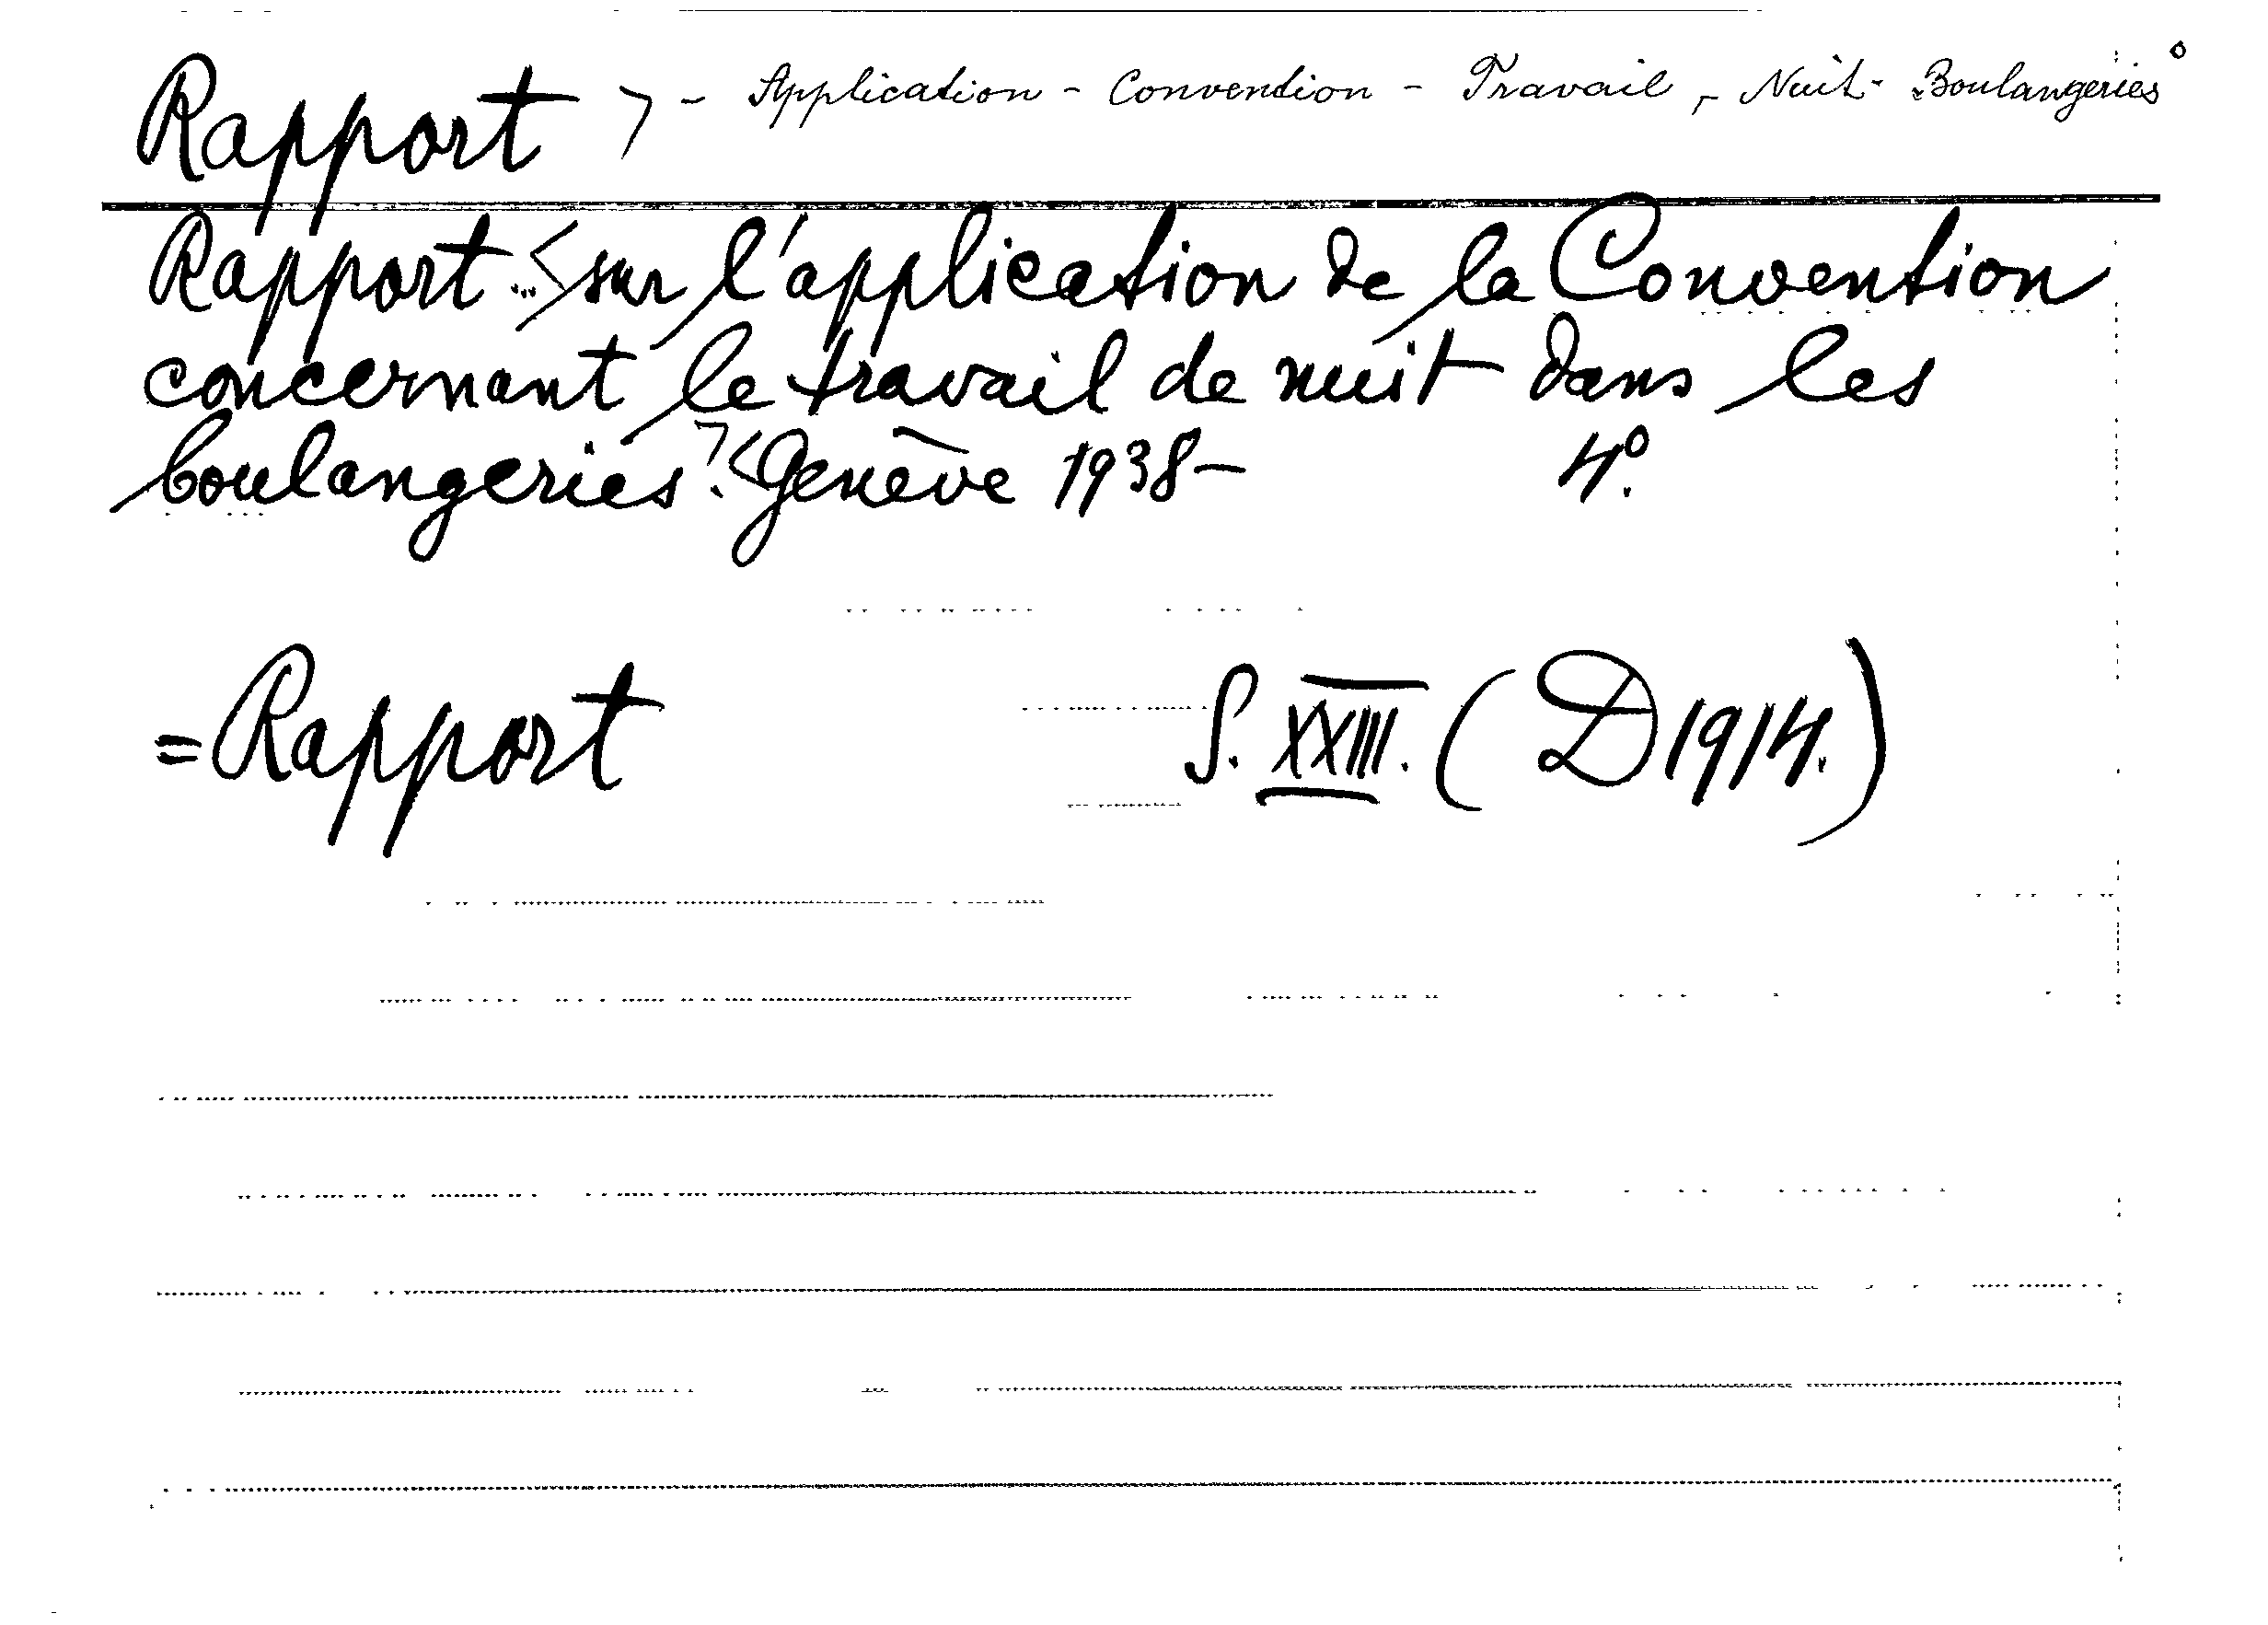 Rapport > - Application - Convention - Travail - Nuit - Boulangeries°
Rapport ...<> sur l'application de la Convention
concernant le travail de nuit dans les
boulangeries >.< Genève 1938- 4°.
= Rapport S. XXIII. (D 1914.)